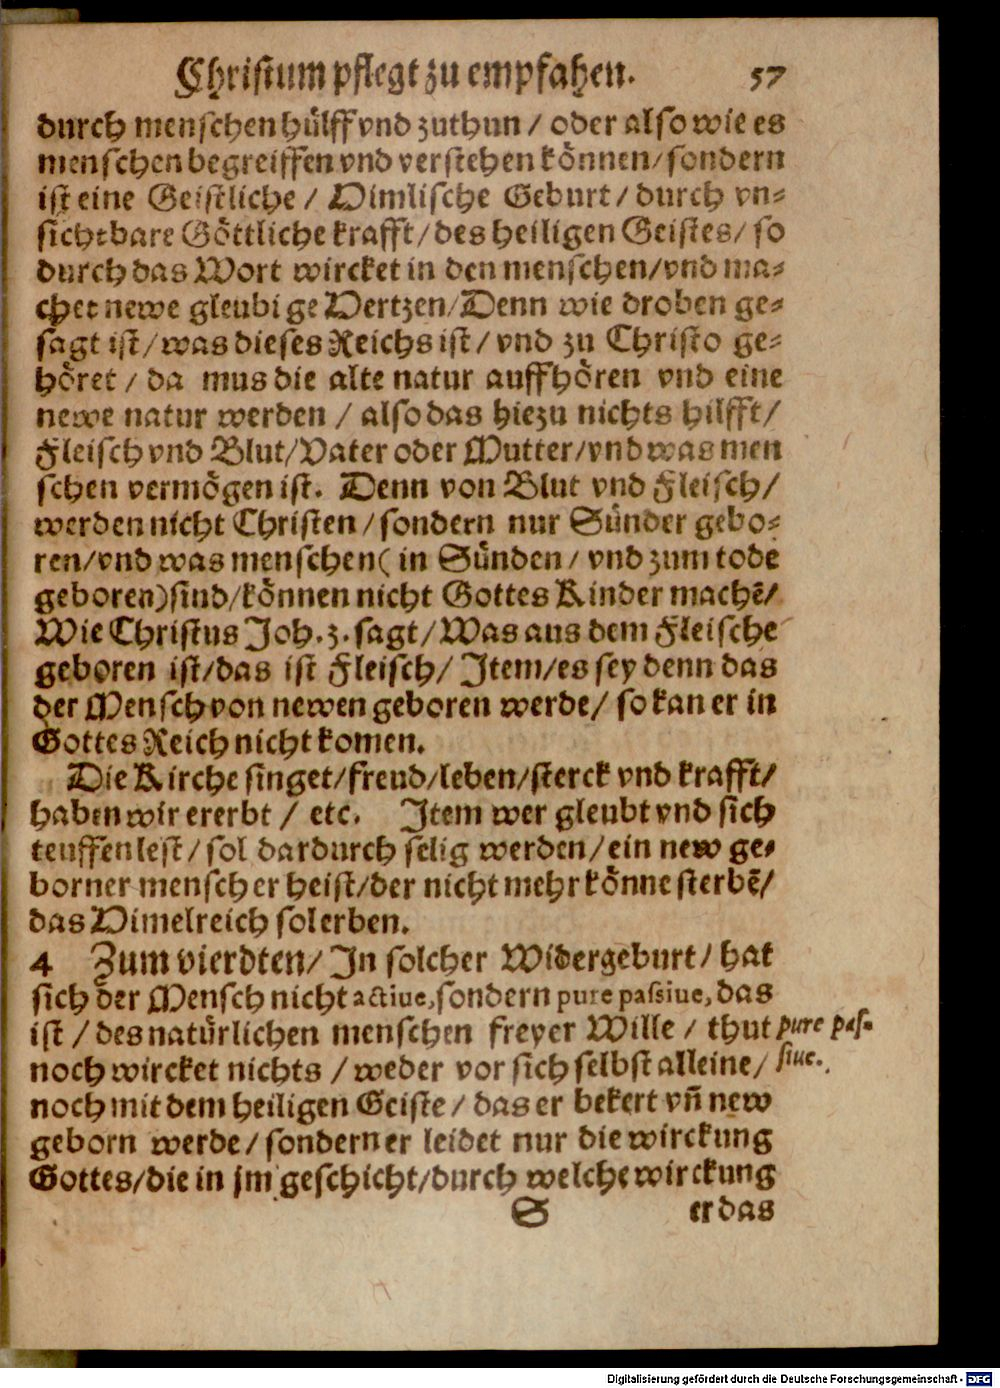 Christum pflegt zu empfahen. 57
durch menschen hůlff vnd zuthun / oder also wie es
menschen begreiffen vnd verstehen kőnnen / sondern
ist eine Geistliche / Himlische Geburt / durch vn⸗
sichtbare Gőttliche krafft / des heiligen Geistes / so
durch das Wort wircket in den menschen / vnd ma⸗
chet newe gleubige Hertzen / Denn wie droben ge⸗
sagt ist / was dieses Reichs ist / vnd zu Christo ge⸗
hőret / da mus die alte natur auffhőren vnd eine
newe natur werden / also das hiezu nichts hilfft /
Fleisch vnd Blut / Vater oder Mutter / vnd was men
schen vermőgen ist. Denn von Blut vnd Fleisch /
werden nicht Christen / sondern nur Sůnder gebo⸗
ren / vnd was menschen ( in Sůnden / vnd zum tode
geboren ) sind / kőnnen nicht Gottes Kinder machẽ /
Wie Christus Joh. 3. sagt / Was aus dem Fleische
geboren ist / das ist Fleisch / Item / es sey denn das
der Mensch von newen geboren werde / so kan er in
Gottes Reich nicht komen.
Die Kirche singet / freud / leben / sterck vnd krafft /
haben wir ererbt / etc. Item wer gleubt vnd sich
teuffen lest / sol dardurch selig werden / ein new ge⸗
borner mensch er heist / der nicht mehr kőnne sterbẽ /
das Himelreich sol erben.
4 Zum vierdten / In solcher Widergeburt / hat
sich der Mensch nicht actiue, sondern pure passiue, das
ist / des natůrlichen menschen freyer Wille / thut
noch wircket nichts / weder vor sich selbst alleine /
noch mit dem heiligen Geiste / das er bekert vñ new
geborn werde / sondern er leidet nur die wirckung
Gottes / die in jm geschicht / durch welche wirckung
H er das
pure pas⸗
siue.
Digitalisierung gefördert durch die Deutsche Forschungsgemeinschaft - DFG